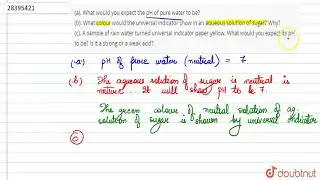 28395421
(a). What would you expect the pH of pure water to be?
(b). What colour would the universal indicator show in an aqueous solution of sugar? Why?
(c). A sample of rain water turned universal indicator paper yellow. What would you expect its pH to be? Is it a strong or a weak acid?
(a) pH of pure water (neutral) = 7.
(b) The aqueous solution of sugar is neutral in
nature. It will show pH to be 7.
The green colour of neutral solution of aq.
solution of sugar is shown by universal indicator
(c)
doubtnut